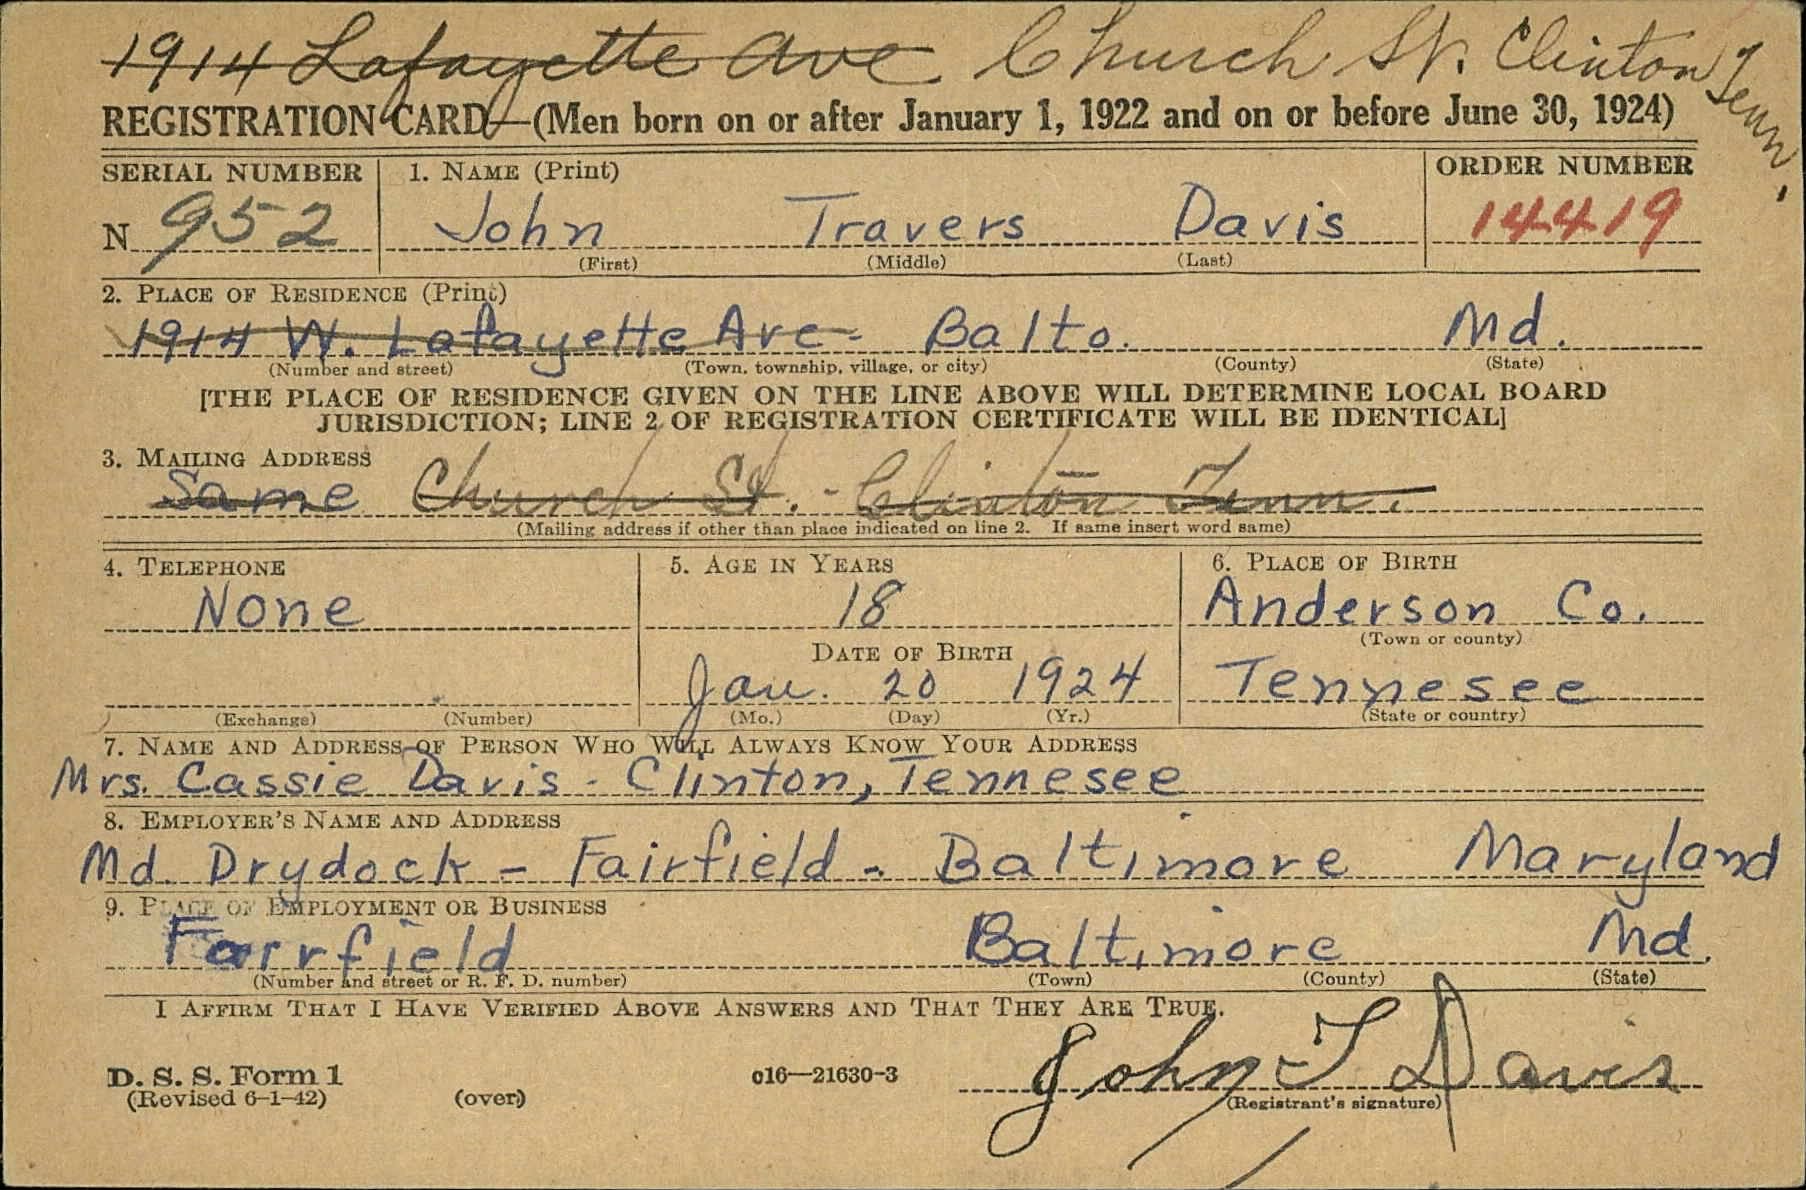 1914 Lafayette Ave Church St. Clinton Tenn.
REGISTRATION CARD—(Men born on or after January 1, 1922 and on or before June 30, 1924)
SERIAL NUMBER 1. NAME (Print) ORDER NUMBER
N 952 John Travers Davis 14419
(First) (Middle) (Last)
2. PLACE OF RESIDENCE (Print)
1914 W. Lafayette Ave- Balto. Md.
(Number and street) (Town, township, village, or city) (County) (State)
[THE PLACE OF RESIDENCE GIVEN ON THE LINE ABOVE WILL DETERMINE LOCAL BOARD
JURISDICTION; LINE 2 OF REGISTRATION CERTIFICATE WILL BE IDENTICAL]
3. MAILING ADDRESS
Same Church St. - Clinton Tenn.
(Mailing address if other than place indicated on line 2. If same insert word same)
4. TELEPHONE 5. AGE IN YEARS 6. PLACE OF BIRTH
None 18 Anderson Co.
(Town or county)
DATE OF BIRTH
Jan. 20 1924 Tennesee
(Exchange) (Number) (Mo.) (Day) (Yr.) (State or country)
7. NAME AND ADDRESS OF PERSON WHO WILL ALWAYS KNOW YOUR ADDRESS
Mrs. Cassie Davis - Clinton, Tennesee
8. EMPLOYER'S NAME AND ADDRESS
Md. Drydock - Fairfield - Baltimore Maryland
9. PLACE OF EMPLOYMENT OR BUSINESS
Fairfield Baltimore Md.
(Number and street or R. F. D. number) (Town) (County) (State)
I AFFIRM THAT I HAVE VERIFIED ABOVE ANSWERS AND THAT THEY ARE TRUE.
D. S. S. Form 1 c16—21630-3 John T Davis
(Revised 6-1-42) (over) (Registrant's signature)